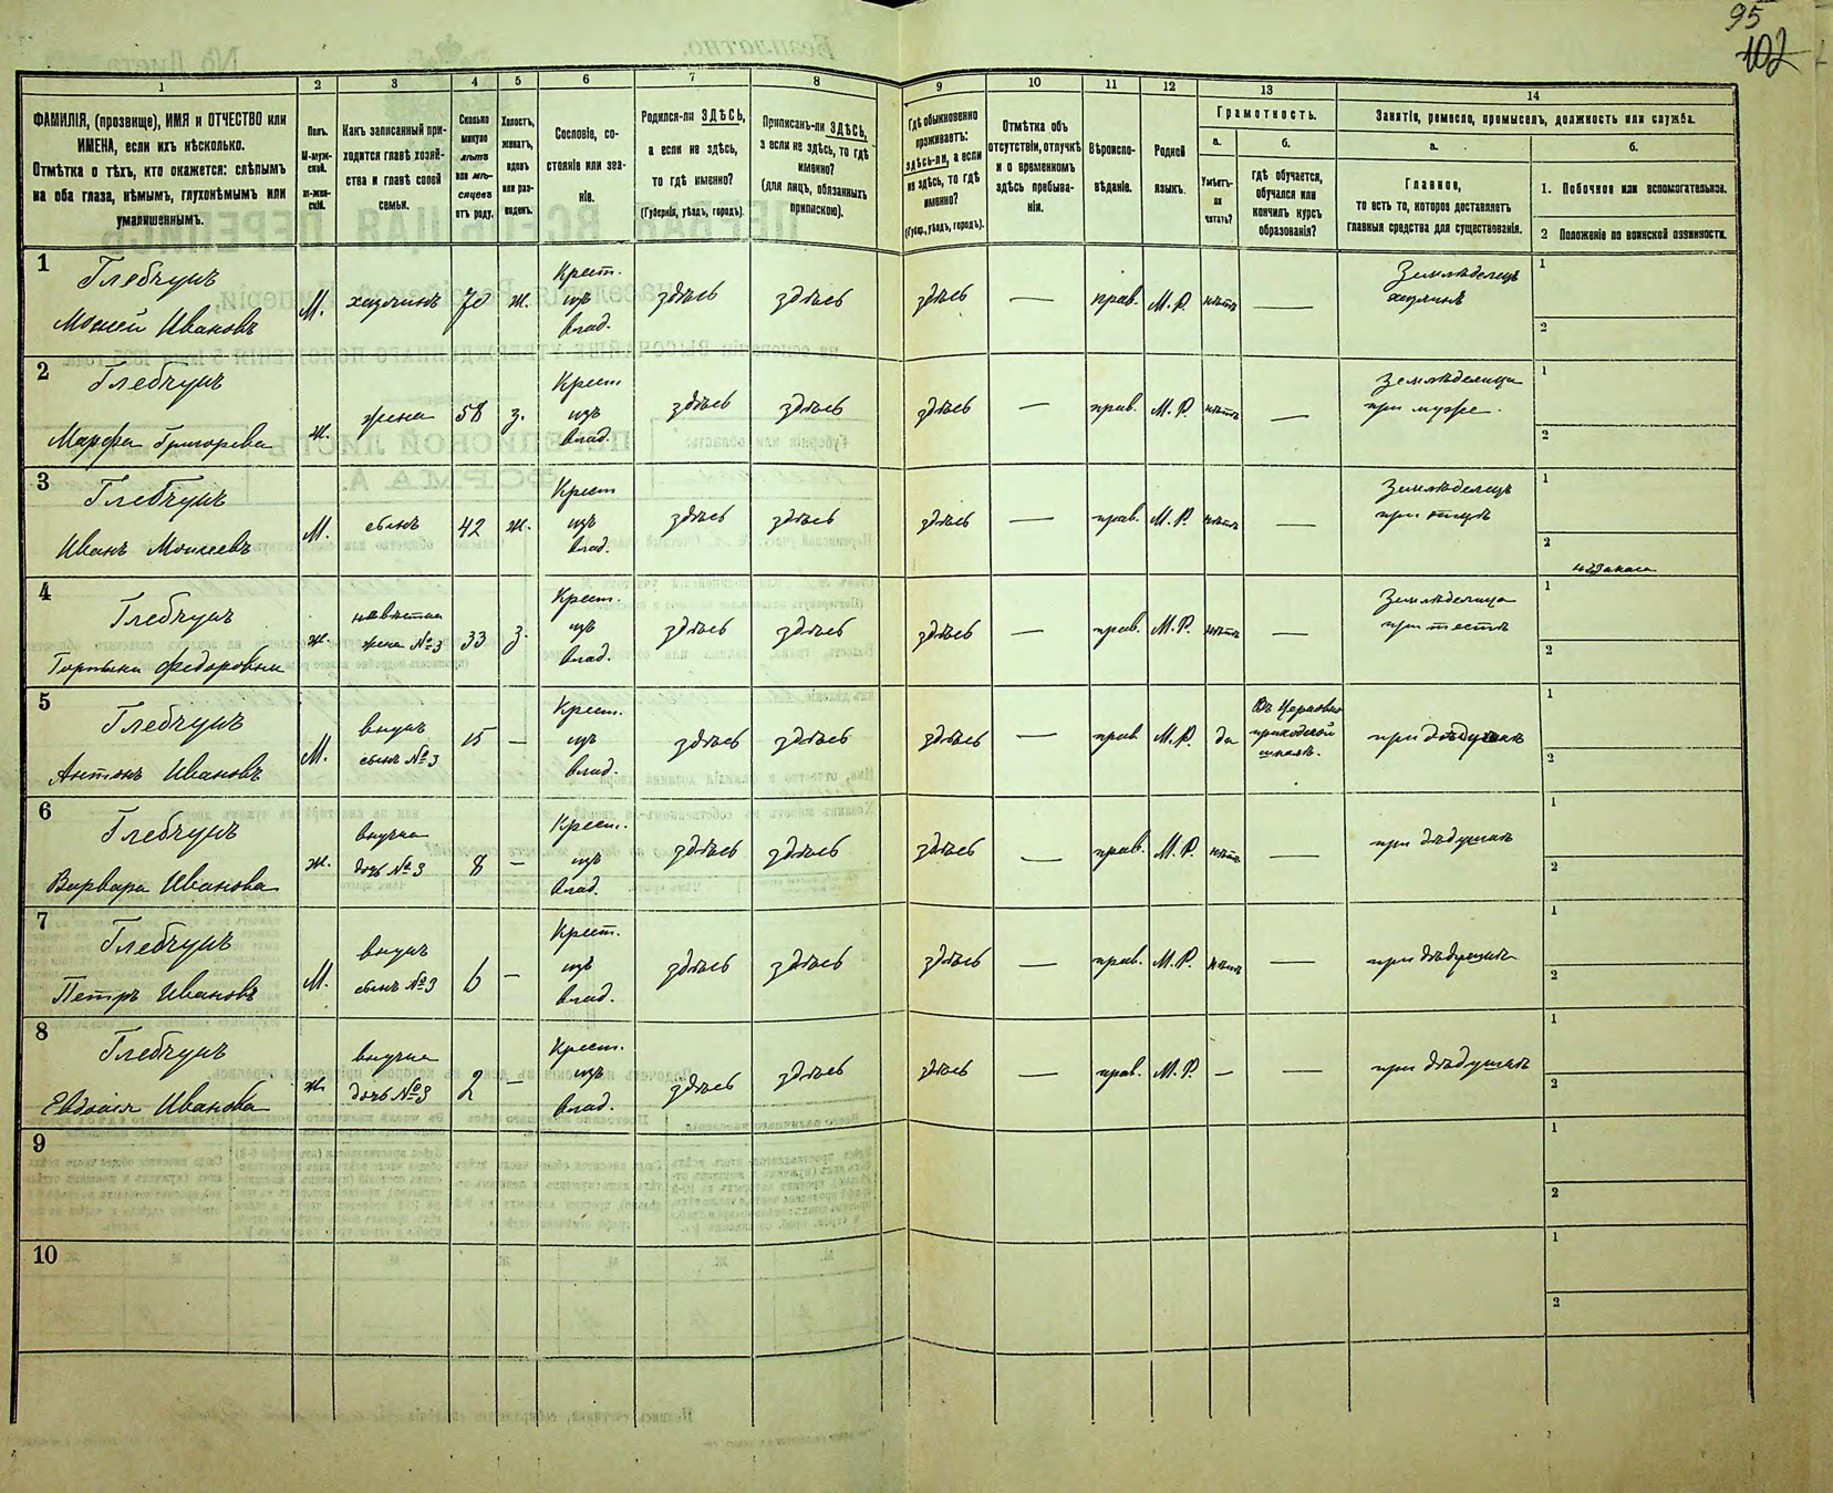 95
102
1
2
3
4
5
6
7
8
9
10
11
12
13
14
ФАМИЛІЯ, (прозвище), ИМЯ и ОТЧЕСТВО или
ИМЕНА, если ихъ нѣсколько.
Отмѣтка о тѣхъ, кто окажется: слѣпымъ
на оба глаза, нѣмымъ, глухонѣмымъ или
умалишеннымъ.
Полъ.
М-муж-
ской.
Ж-жен-
скій.
Какъ записанный при-
ходится главѣ хозяй-
ства и главѣ своей
семьи.
Сколько
минуло
лѣтъ
или мѣ-
сяцевъ
отъ роду.
Холостъ,
женатъ,
вдовъ
или раз-
веденъ.
Сословіе, со-
стояніе или зва-
ніе.
Родился-ли ЗДѢСЬ,
а если не здѣсь,
то гдѣ именно?
(Губернія, уѣздъ, городъ).
Приписанъ-ли ЗДѢСЬ,
а если не здѣсь, то гдѣ
именно?
(для лицъ, обязанныхъ
припискою).
Гдѣ обыкновенно
проживаетъ:
здѣсь-ли, а если
не здѣсь, то гдѣ
именно?
(Губер., уѣздъ, городъ).
Отмѣтка объ
отсутствіи, отлучкѣ
и о временномъ
здѣсь пребыва-
ніи.
Вѣроиспо-
вѣданіе.
Родной
языкъ.
Грамотность.
а.
Умѣетъ-
ли
читать?
б.
гдѣ обучается,
обучался или
кончилъ курсъ
образованія?
Занятіе, ремесло, промыселъ, должность или служба.
а.
Главное,
то есть то, которое доставляетъ
главныя средства для существованія.
б.
1. Побочное или вспомогательное.
2 Положеніе по воинской повинности.
1
Глебчукъ
Моисей Ивановъ
М. хазяинъ 70 ж.
Крест.
изъ
влад.
здѣсь здѣсь здѣсь — прав. М. Р. нѣтъ —
Земледѣлецъ
хазяинъ
1
2
2
Глебчукъ
Марфа Григорева
ж. жена 58 з.
Крест
изъ
влад.
здѣсь здѣсь здѣсь — прав. М. Р. нѣтъ —
Земледѣлица
при муже.
1
2
3
Глебчукъ
Иванъ Моисеевъ
М. сынъ 42 ж.
Крест
изъ
влад.
здѣсь здѣсь здѣсь — прав. М. Р. нѣтъ —
Земледѣлецъ
при отцѣ
1
2
4
Глебчукъ
Федоровна
ж.
невѣстка
жена №3
33 з.
Крест.
изъ
влад.
здѣсь здѣсь здѣсь — прав. М. Р. нѣтъ —
Земледѣлица
при тестѣ
1
2
5
Глебчукъ
Антонъ Ивановъ
М.
внукъ
сынъ №3
15 —
Крест.
изъ
влад.
здѣсь здѣсь здѣсь — прав М. Р. да
Въ Церковно
приходской
школѣ.
при дѣдушкѣ
1
2
6
Глебчукъ
Варвара Иванова
ж.
внучка
дочь №3
8 —
Крест.
изъ
влад.
здѣсь здѣсь здѣсь — прав. М. Р. нѣтъ —
при дѣдушкѣ
1
2
7
Глебчукъ
Петръ Ивановъ
М.
внукъ
сынъ №3
6 —
Крест.
изъ
влад.
здѣсь здѣсь здѣсь — прав. М. Р. нѣтъ —
при дѣдушкѣ
1
2
8
Глебчукъ
Евдокія Иванова
ж.
внучка
дочь №3
2 —
Крест.
изъ
влад.
здѣсь здѣсь здѣсь — прав. М. Р. — —
при дѣдушкѣ
1
2
9
1
2
10
1
2